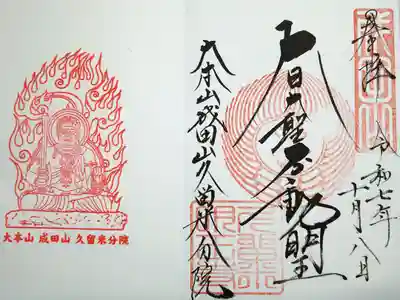 奉拝
令和七年
十月八日
大日大聖不動明王
大本山成田山久留米分院
大本山 成田山 久留米分院